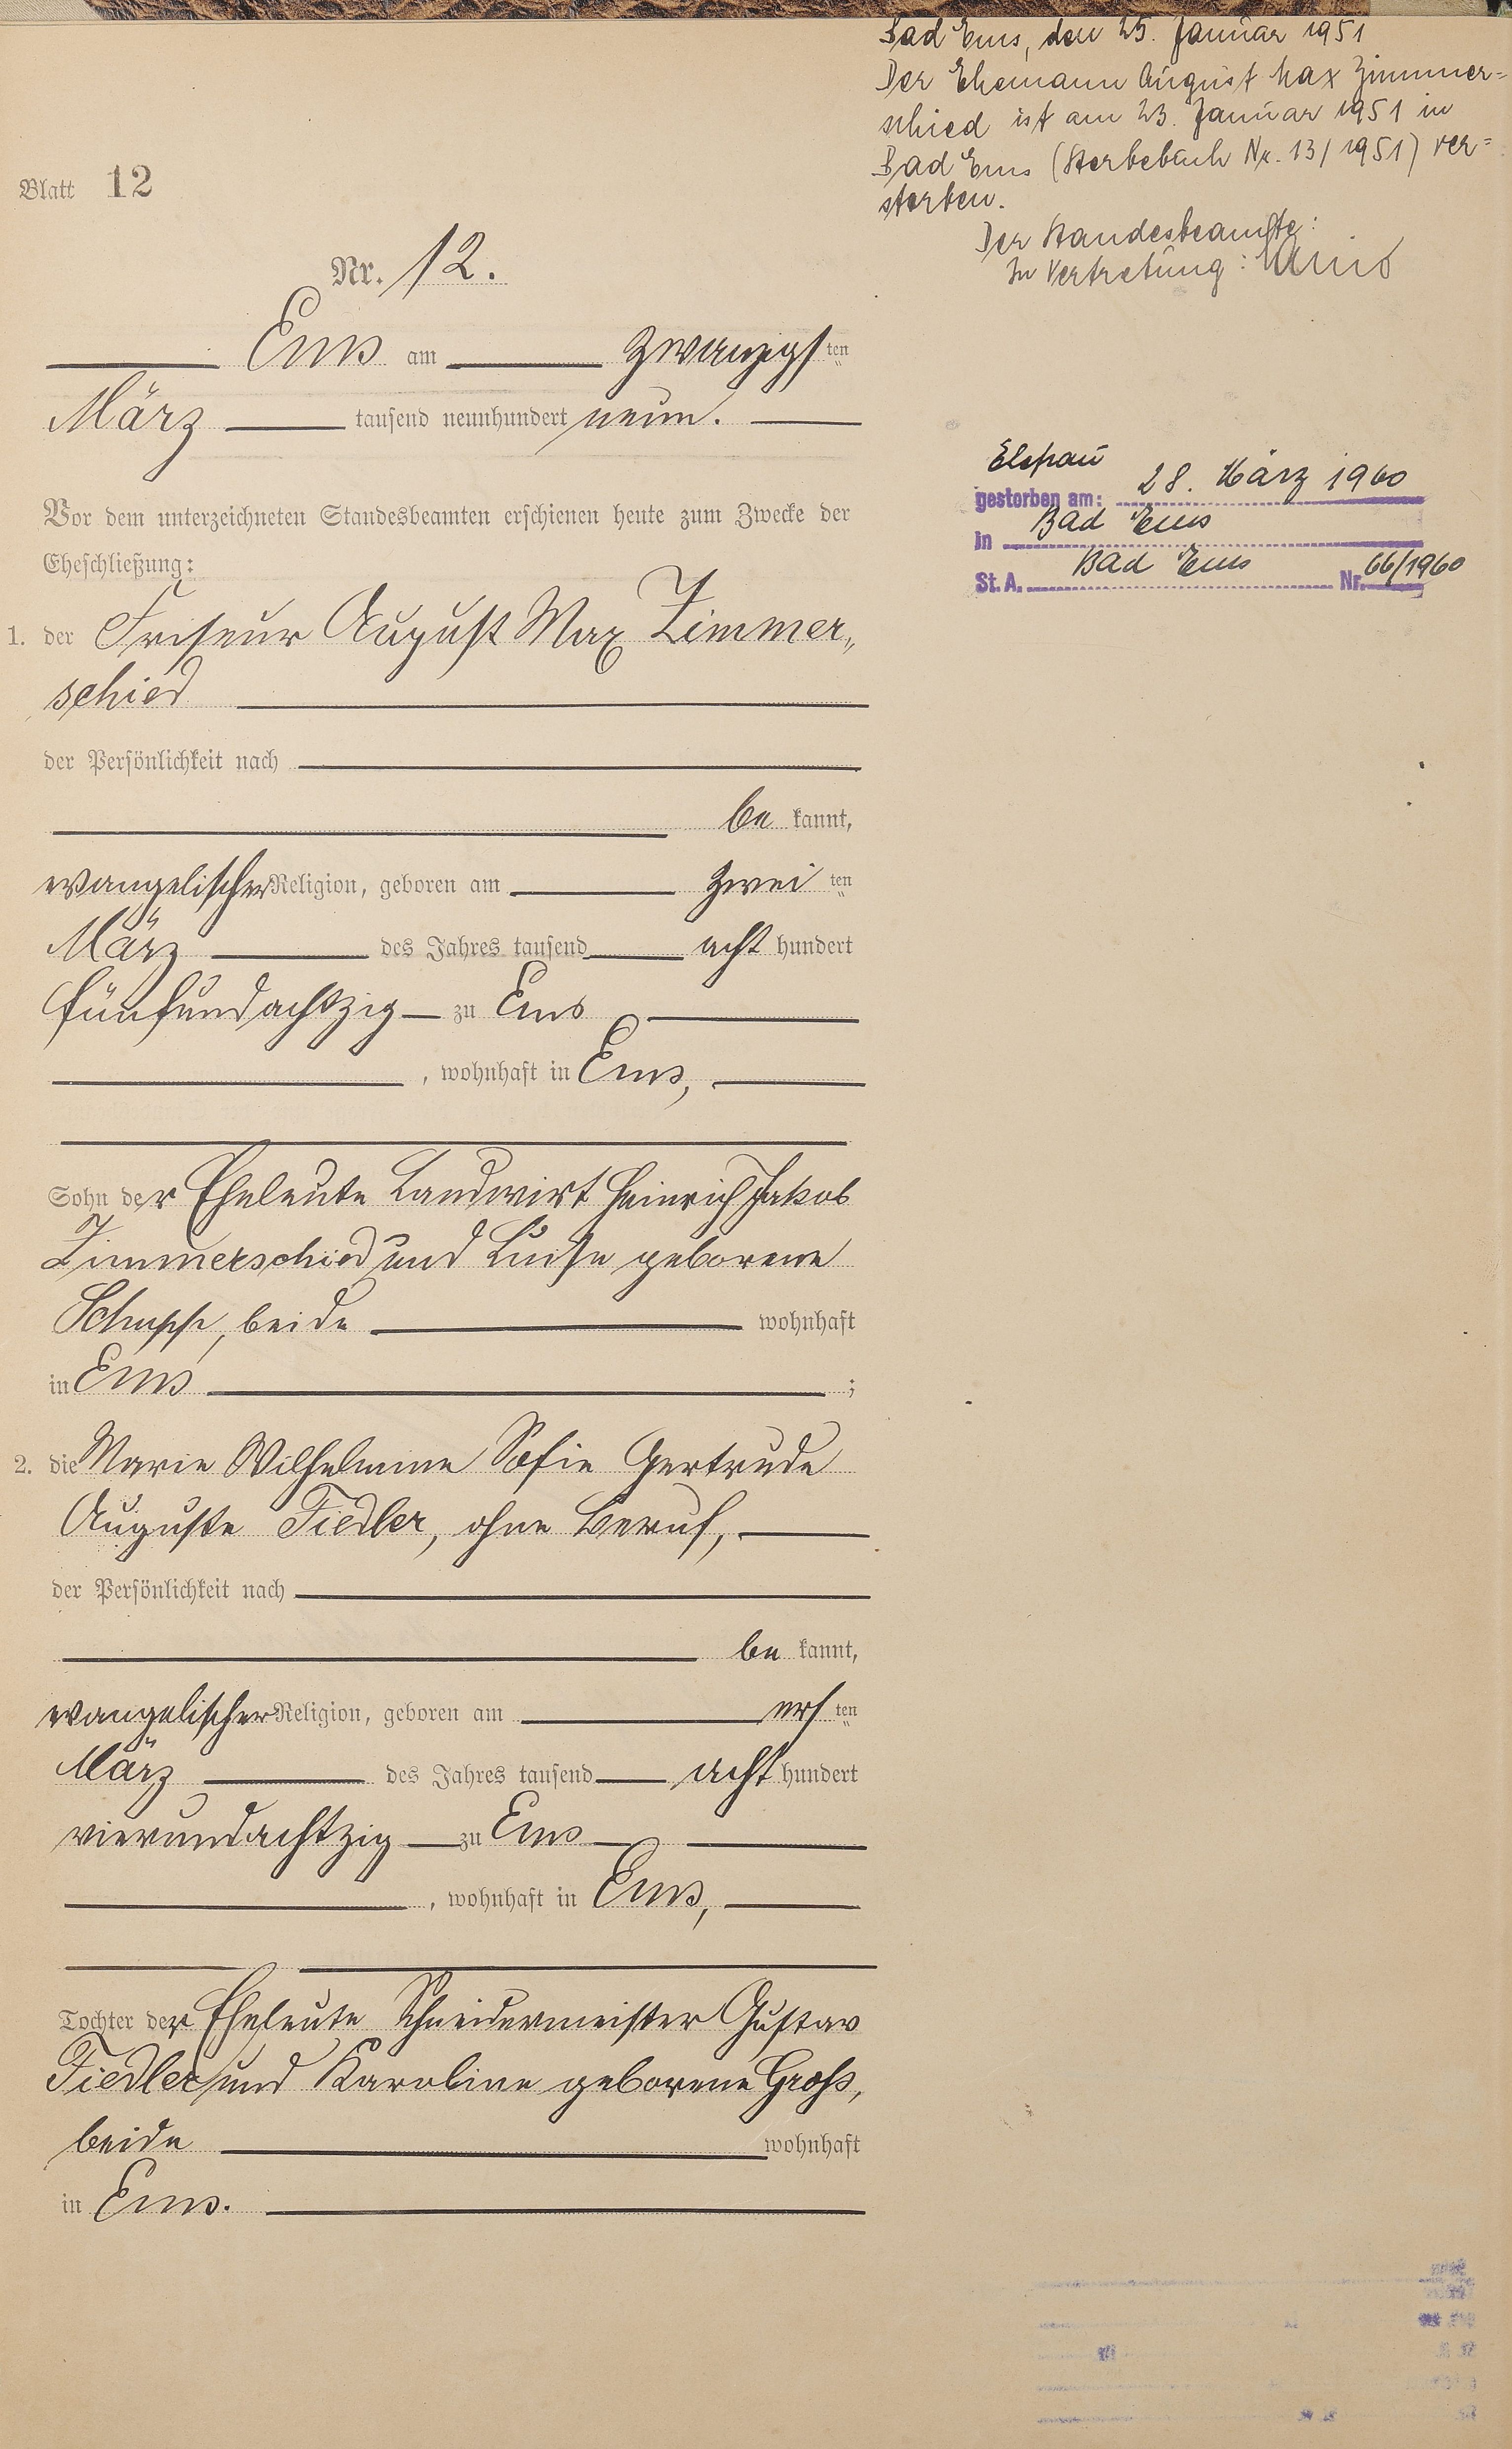 Bad Ems, den 25. Januar 1951
Der Ehemann August Max Zimmer=
schied ist am 23. Januar 1951 in
Bad Ems (Sterbebuch Nr. 13/1951) ver=
storben.
Der Standesbeamte:
In Vertretung:
Blatt 12
Nr. 12.
Ems am zwanzigsten
März tausend neunhundert neun.
Ehefrau
gestorben am: 28. März 1960
in Bad Ems
St. A. Bad Ems Nr. 66/1960
Vor dem unterzeichneten Standesbeamten erschienen heute zum Zwecke der
Eheschließung:
1. der Friseur August Max Zimmer„
schied
der Persönlichkeit nach
be kannt,
evangelischer Religion, geboren am zwei ten
März des Jahres tausend acht hundert
fünfundachtzig zu Ems
, wohnhaft in Ems,
Sohn der Eheleute Landwirt Heinrich Jakob
Zimmerschied und Luise geborene
Schupp, beide wohnhaft
in Ems ;
2. die Marie Wilhelmine Sofie Gertrude
Auguste Fiedler, ohne Beruf,
der Persönlichkeit nach
be kannt,
evangelischer Religion, geboren am ersten
März des Jahres tausend acht hundert
vierundachtzig zu Ems
, wohnhaft in Ems,
Tochter der Eheleute Schneidermeister Gustav
Fiedler und Karoline geborene Groß,
beide wohnhaft
in Ems.